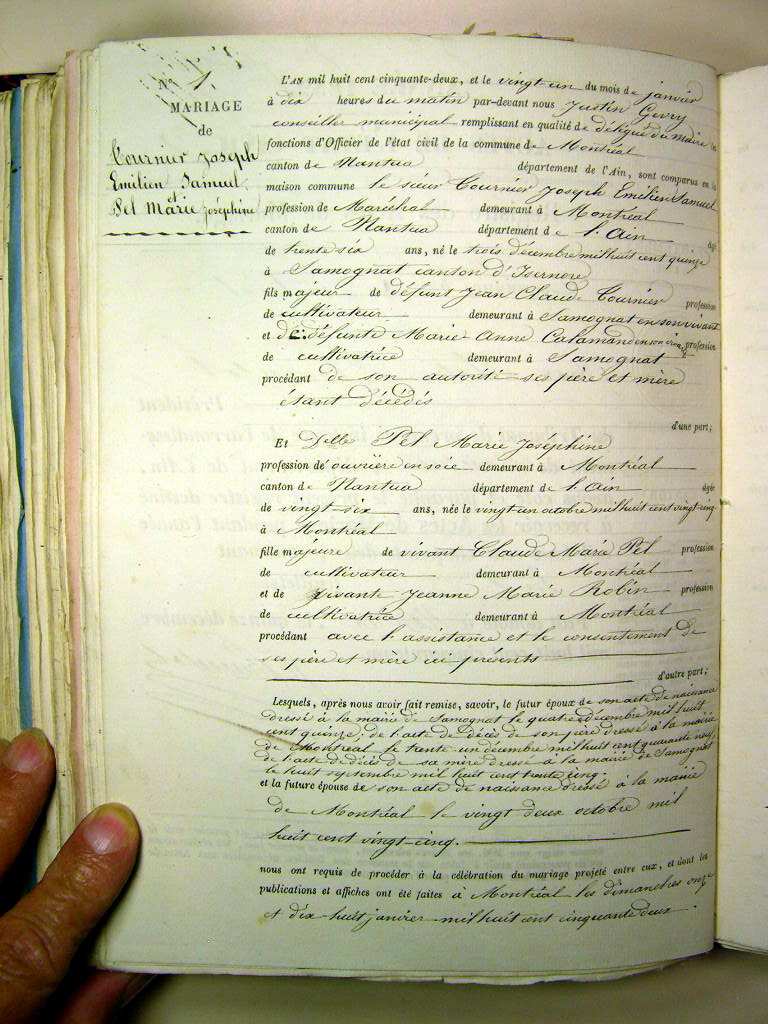 N° 1
MARIAGE
de
Tournier Joseph
Emilien Samuel
et
Pel Marie Joséphine
L'AN mil huit cent cinquante-deux, et le vingt un du mois de janvier
à dix heures du matin par-devant nous Justin Gevry
conseiller municipal remplissant en qualité de délégué du maire les
fonctions d'Officier de l'état civil de la commune de Montréal
canton de Nantua département de l'Ain, sont comparus en la
maison commune le sieur Tournier Joseph Emilien Samuel
profession de Maréchal demeurant à Montréal
canton de Nantua département de l'Ain âgé
de trente six ans, né le trois décembre mil huit cent quinze
à Samognat canton d'Isernore
fils majeur de défunt Jean Claude Tournier profession
de cultivateur demeurant à Samognat en son vivant
et de défunte Marie Anne Calamand en son vivant profession
de cultivatrice demeurant à Samognat
procédant de son autorité ses père et mère
étant décédés
d'une part;
Et Delle Pel Marie Joséphine
profession de ouvrière en soie demeurant à Montréal
canton de Nantua département de l'Ain âgée
de vingt six ans, née le vingt un octobre mil huit cent vingt cinq
à Montréal
fille majeure de vivant Claude Marie Pel profession
de cultivateur demeurant à Montréal
et de vivante Jeanne Marie Robin profession
de cultivatrice demeurant à Montréal
procédant avec l'assistance et le consentement de
ses père et mère ici présents
d'autre part;
Lesquels, après nous avoir fait remise, savoir, le futur époux de son acte de naissance
dressé à la mairie de Samognat le quatre décembre mil huit
cent quinze; de l'acte de décès de son père dressé à la mairie
de Montréal le trente un décembre mil huit cent quarante neuf,
de l'acte de décès de sa mère dressé à la mairie de Samognat
le huit septembre mil huit cent trente cinq.
et la future épouse de son acte de naissance dressé à la mairie
de Montréal le vingt deux octobre mil
huit cent vingt-cinq.
nous ont requis de procéder à la célébration du mariage projeté entre eux, et dont les
publications et affiches ont été faites à Montréal les dimanches onze
et dix-huit janvier mil huit cent cinquante deux.